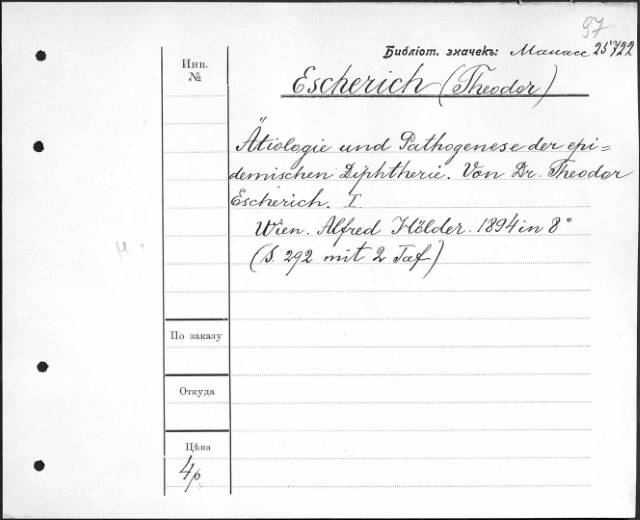 97
Библіот. значекъ: Манасс 25722
Инв.
№
Escherich (Theodor)
Ätiologie und Pathogenese der epi=
demischen Diphtherie. Von Dr. Theodor
Escherich. I.
Wien. Alfred Hölder. 1894 in 8°
(S. 292 mit 2 Taf)
По заказу
Откуда
Цѣна
4р.